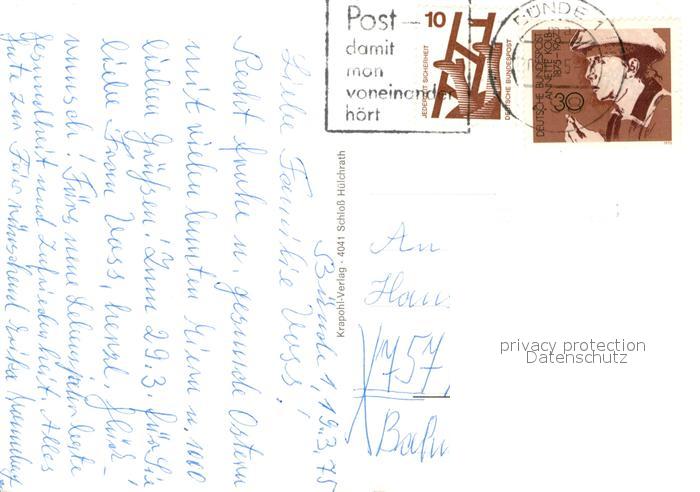 Post
damit
man
voneinander
hört
BÜNDE 1
10
JEDERZEIT SICHERHEIT
DEUTSCHE BUNDESPOST
DEUTSCHE BUNDESPOST
ANNETTE KOLB
1875-1967
30
Krapohl-Verlag · 4041 Schloß Hülchrath
Bünde 1, 19.3.75
Liebe Familie Voss!
Recht frohe u. gesunde Ostern
mit vielen bunten Eiern u. 1000
lieben Grüßen! Zum 29.3. für Sie
liebe Frau Voss, herzl. Glück-
wunsch! Fürs neue Lebensjahr
Gesundheit und Zufriedenheit. Alles
Gute zur Feier wünschend Erika
An
Haus
757
privacy protection
Datenschutz